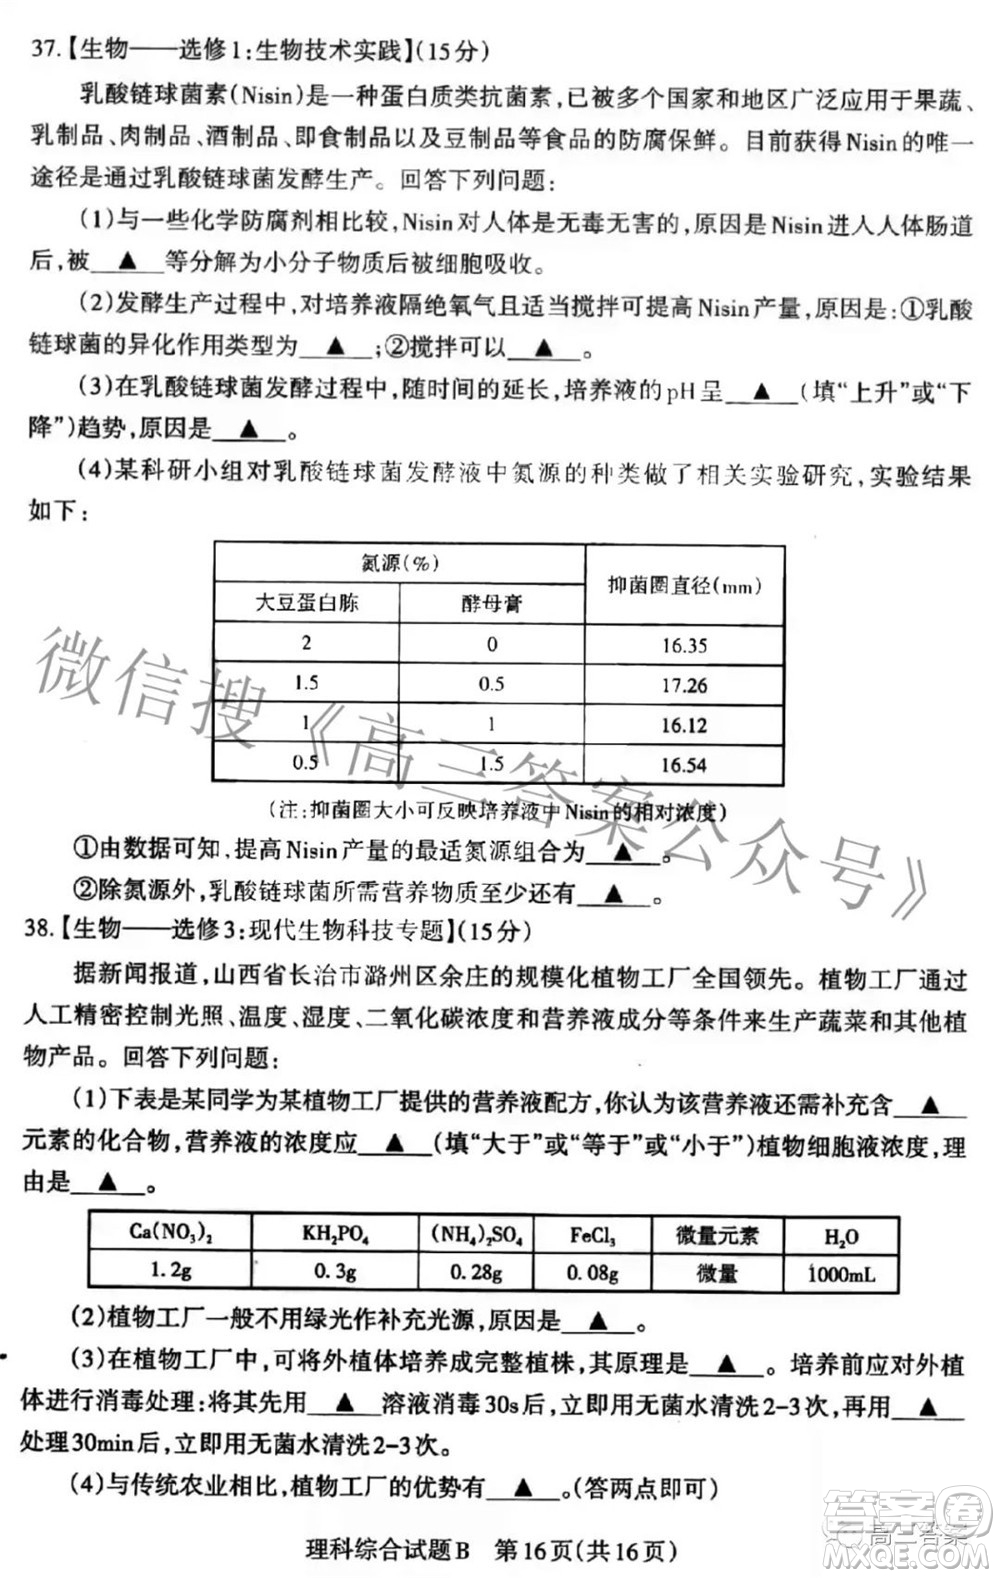 37.【生物——选修1:生物技术实践】(15分)
乳酸链球菌素(Nisin)是一种蛋白质类抗菌素,已被多个国家和地区广泛应用于果蔬、
乳制品、肉制品、酒制品、即食制品以及豆制品等食品的防腐保鲜。目前获得Nisin的唯一
途径是通过乳酸链球菌发酵生产。回答下列问题:
(1)与一些化学防腐剂相比较,Nisin对人体是无毒无害的,原因是Nisin进入人体肠道
后,被 ▲ 等分解为小分子物质后被细胞吸收。
(2)发酵生产过程中,对培养液隔绝氧气且适当搅拌可提高Nisin产量,原因是:①乳酸
链球菌的异化作用类型为 ▲ ;②搅拌可以 ▲ 。
(3)在乳酸链球菌发酵过程中,随时间的延长,培养液的pH呈 ▲ (填“上升”或“下
降”)趋势,原因是 ▲ 。
(4)某科研小组对乳酸链球菌发酵液中氮源的种类做了相关实验研究,实验结果
如下:
氮源(%) 抑菌圈直径(mm)
大豆蛋白胨 酵母膏
2 0 16.35
1.5 0.5 17.26
1 1 16.12
0.5 1.5 16.54
(注:抑菌圈大小可反映培养液中Nisin的相对浓度)
①由数据可知,提高Nisin产量的最适氮源组合为 ▲ 。
②除氮源外,乳酸链球菌所需营养物质至少还有 ▲ 。
38.【生物——选修3:现代生物科技专题】(15分)
据新闻报道,山西省长治市潞州区余庄的规模化植物工厂全国领先。植物工厂通过
人工精密控制光照、温度、湿度、二氧化碳浓度和营养液成分等条件来生产蔬菜和其他植
物产品。回答下列问题:
(1)下表是某同学为某植物工厂提供的营养液配方,你认为该营养液还需补充含 ▲
元素的化合物,营养液的浓度应 ▲ (填“大于”或“等于”或“小于”)植物细胞液浓度,理
由是 ▲ 。
Ca(NO₃)₂ KH₂PO₄ (NH₄)₂SO₄ FeCl₃ 微量元素 H₂O
1.2g 0.3g 0.28g 0.08g 微量 1000mL
(2)植物工厂一般不用绿光作补充光源,原因是 ▲ 。
(3)在植物工厂中,可将外植体培养成完整植株,其原理是 ▲ 。培养前应对外植
体进行消毒处理:将其先用 ▲ 溶液消毒30s后,立即用无菌水清洗2-3次,再用 ▲
处理30min后,立即用无菌水清洗2-3次。
(4)与传统农业相比,植物工厂的优势有 ▲ 。(答两点即可)
理科综合试题B 第16页(共16页)
微信搜《高三答案公众号》
答案圈
高三答案
MXQE.COM